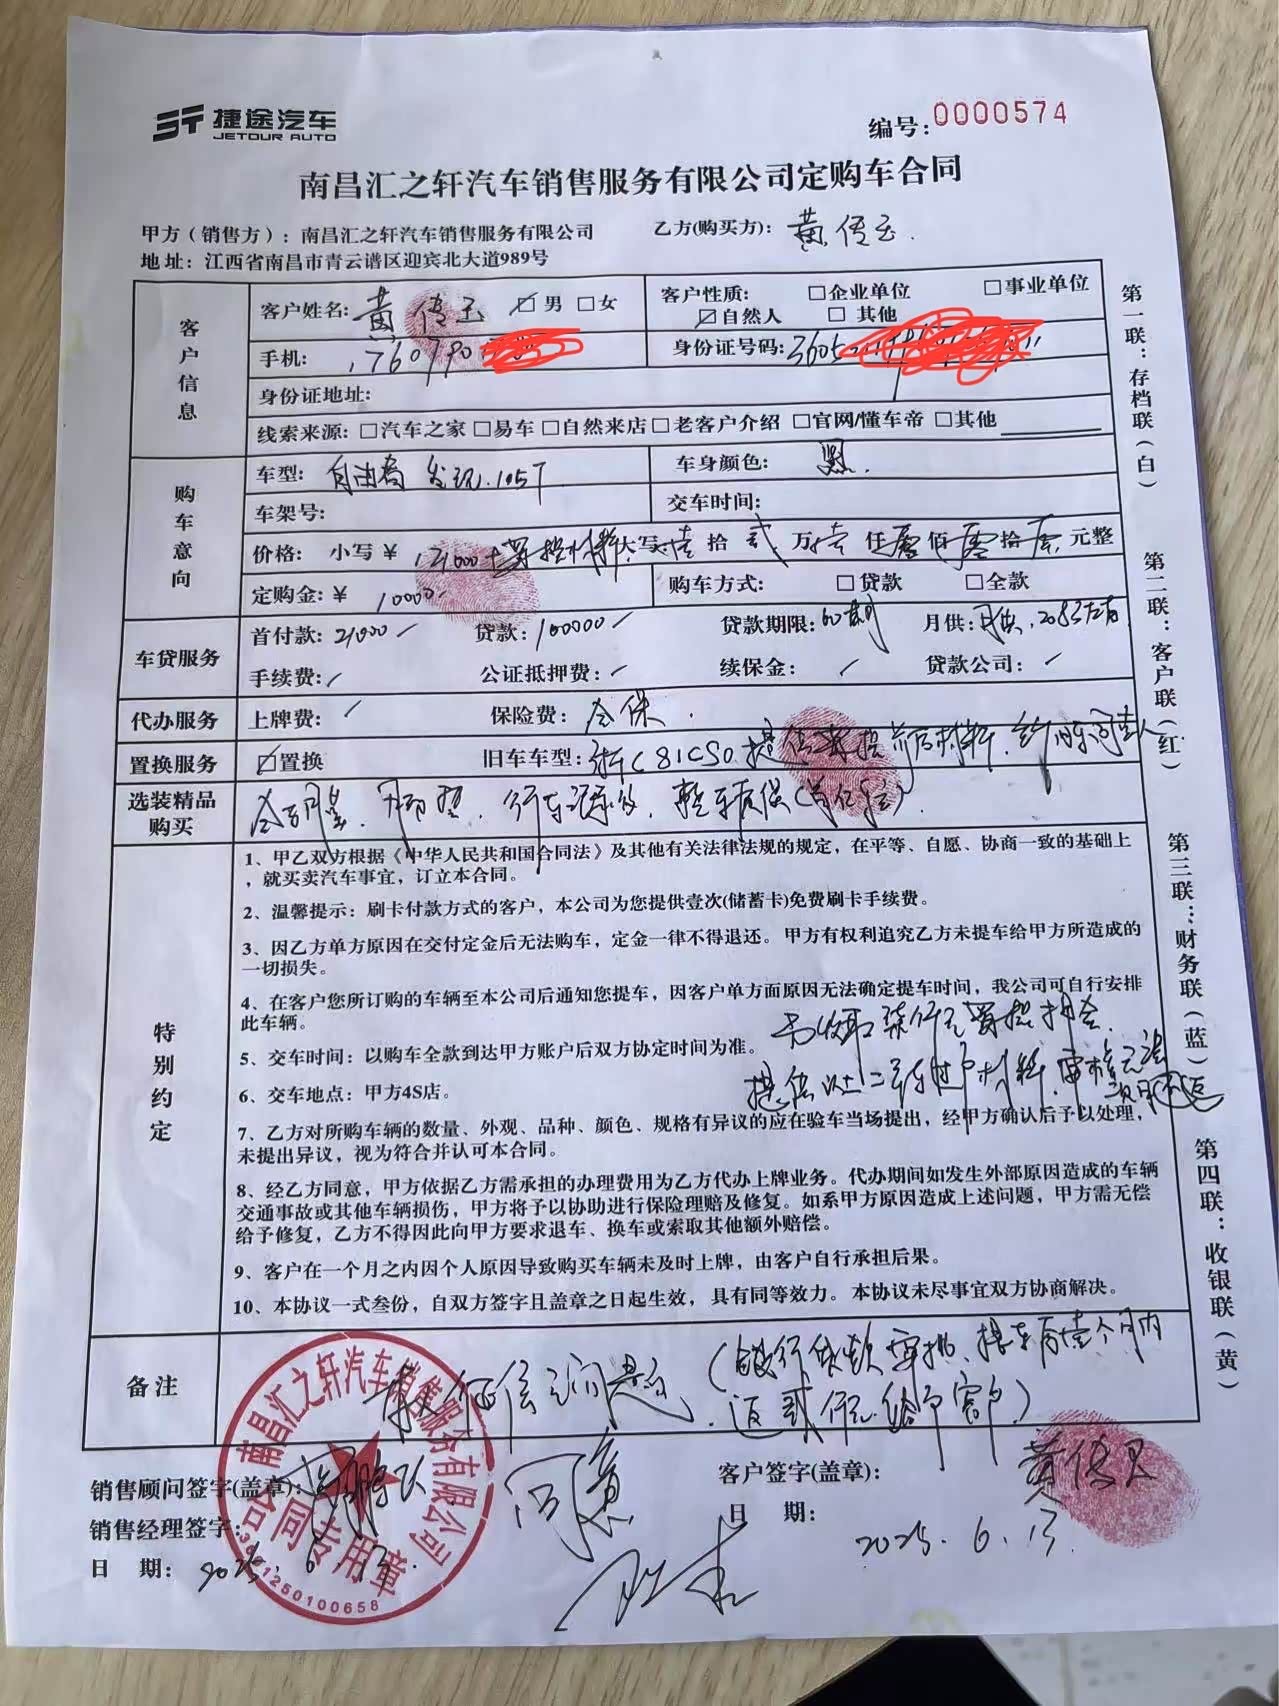 捷途汽车
JETOUR AUTO
编号:0000574
南昌汇之轩汽车销售服务有限公司定购车合同
甲方（销售方）: 南昌汇之轩汽车销售服务有限公司 乙方(购买方): 黄传玉
地 址: 江西省南昌市青云谱区迎宾北大道989号
客户信息
客户姓名: 黄传玉 ☑男 □女 客户性质: □企业单位 □事业单位
☑自然人 □ 其他
手机: 1760790 身份证号码: 3605
身份证地址:
线索来源: □汽车之家 □易车 □自然来店 □老客户介绍 □官网/懂车帝 □其他
购车意向
车型: 自由者 发现.105T 车身颜色: 黑.
车架号: 交车时间:
价格: 小写 ¥ 121000+置换材料 大写:壹 拾 贰 万 壹 仟 零 佰 零 拾 零 元整
定购金: ¥ 10000 购车方式: □贷款 □全款
车贷服务
首付款: 21000 贷款: 100000 贷款期限: 60期 月供: 2083左右
手续费: 公证抵押费: 续保金: 贷款公司:
代办服务 上牌费: 保险费: 全保.
置换服务 ☑置换 旧车车型: 提供置换前后材料
选装精品购买 脚垫, 行车记录仪, 整车质保(首任车主)
特别约定
1、甲乙双方根据《中华人民共和国合同法》及其他有关法律法规的规定，在平等、自愿、协商一致的基础上
，就买卖汽车事宜，订立本合同。
2、温馨提示: 刷卡付款方式的客户，本公司为您提供壹次(储蓄卡)免费刷卡手续费。
3、因乙方单方原因在交付定金后无法购车，定金一律不得退还。甲方有权利追究乙方未提车给甲方所造成的
一切损失。
4、在客户您所订购的车辆至本公司后通知您提车，因客户单方面原因无法确定提车时间，我公司可自行安排
此车辆。
5、交车时间: 以购车全款到达甲方账户后双方协定时间为准。
6、交车地点: 甲方4S店。
提供以上二手车过户材料,审核无法
7、乙方对所购车辆的数量、外观、品种、颜色、规格有异议的应在验车当场提出，经甲方确认后予以处理，
未提出异议，视为符合并认可本合同。
8、经乙方同意，甲方依据乙方需承担的办理费用为乙方代办上牌业务。代办期间如发生外部原因造成的车辆
交通事故或其他车辆损伤，甲方将予以协助进行保险理赔及修复。如系甲方原因造成上述问题，甲方需无偿
给予修复，乙方不得因此向甲方要求退车、换车或索取其他额外赔偿。
9、客户在一个月之内因个人原因导致购买车辆未及时上牌，由客户自行承担后果。
10、本协议一式叁份，自双方签字且盖章之日起生效，具有同等效力。本协议未尽事宜双方协商解决。
备注
征信问题 (银行放款 提车后壹个月内
返贰仟元给客户)
销售顾问签字(盖章): 同意 客户签字(盖章): 黄传玉
销售经理签字:
日 期: 2025.6.13. 日 期: 2025.6.13.
南昌汇之轩汽车销售服务有限公司
合同专用章
3601250100658
第一联:存档联(白)
第二联:客户联(红)
第三联:财务联(蓝)
第四联:收银联(黄)